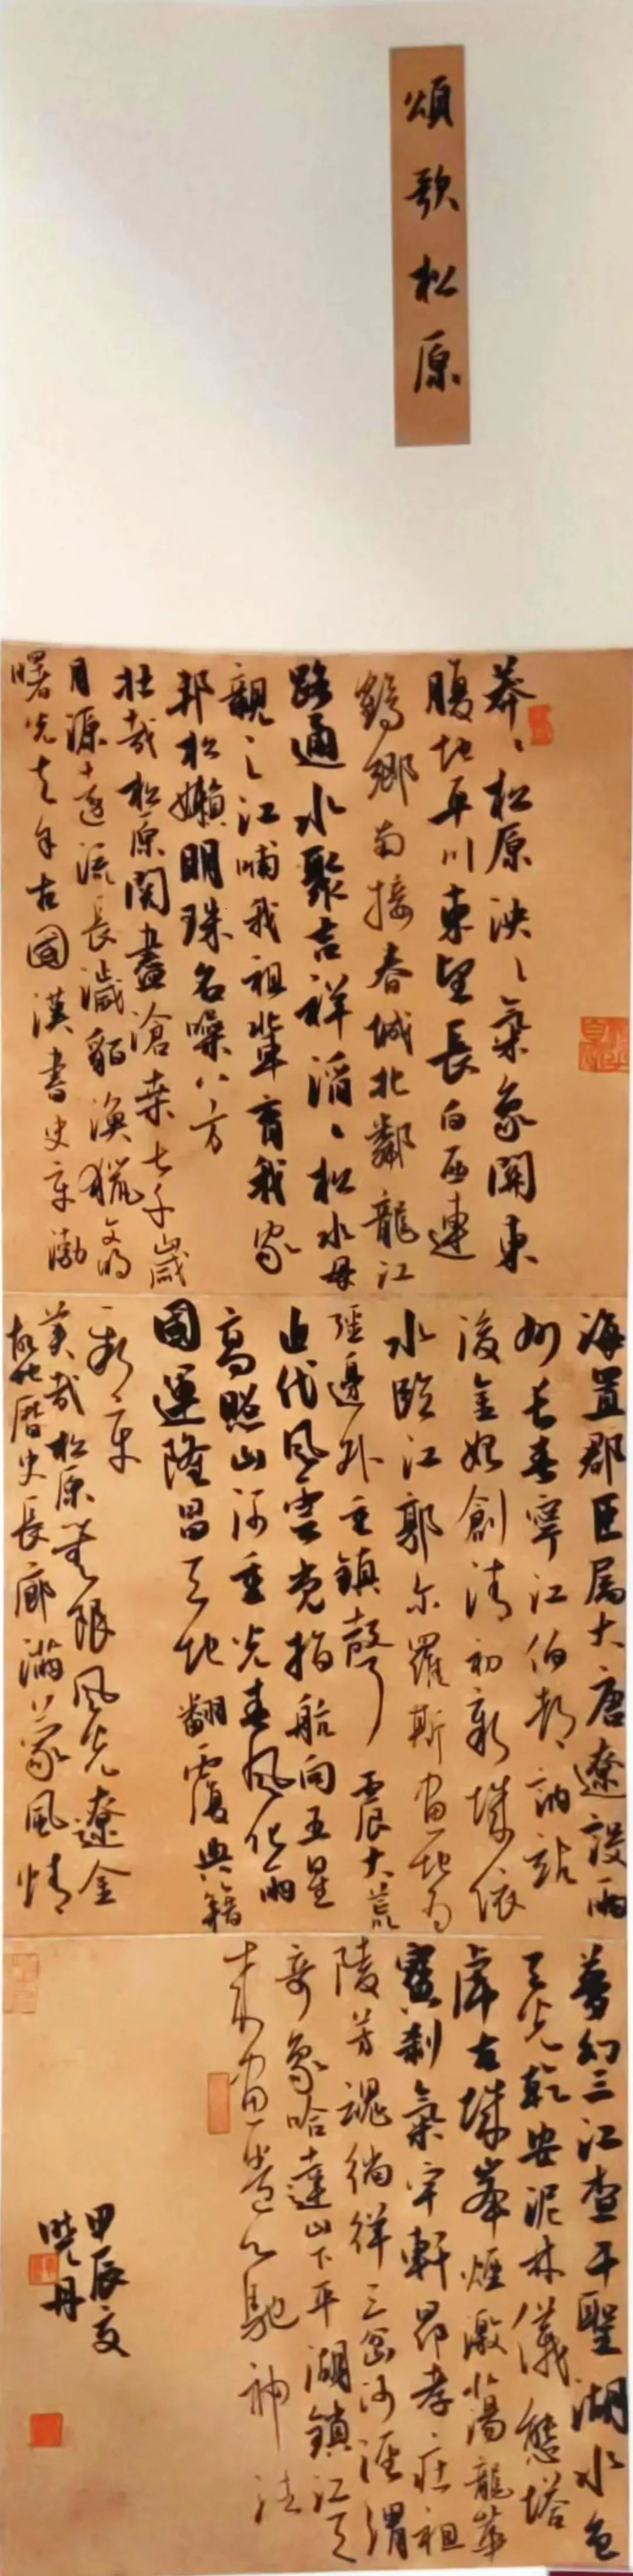 頌歌松原
莽〻松原泱〻氣象關東
腹地平川東望長白西連
鶴鄉南接春城北鄰龍江
路通水聚吉祥滔〻松水母
親之江哺我祖輩育我家
邦松嫩明珠名噪八方
壯哉松原閱盡滄桑七千歲
月源遠流長濊貊漁獵文明
曙光夫余古國漢書史章渤
海置郡臣屬大唐遼設兩
州長春寧江伯都訥站
後金始創清初新城依
水臨江郭尔羅斯畫地为
疆邊外重鎮聲震大荒
近代風雲党指航向五星
高照山河重光春風化雨
國運隆昌天地翻覆典籍
新章
美哉松原無限風光遼金
故地歷史長廊滿蒙風情
夢幻三江查干聖湖水色
天光乾安泥林儀態塔
虎古城烽煙激蕩龍華
寶刹氣宇軒昂孝莊祖
陵芳魂徜徉三岔河涇渭
奇象哈達山下平湖鎮江天
未來畫卷心馳神往
甲辰夏
曉丹